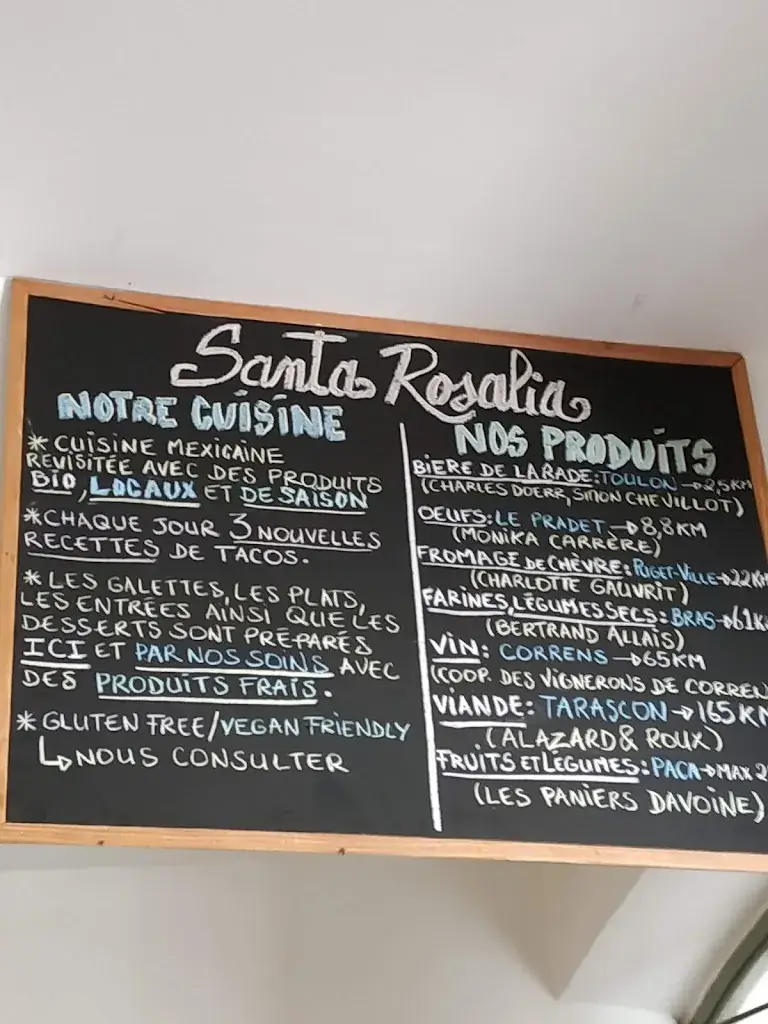 Santa Rosalia
NOTRE CUISINE
* CUISINE MEXICAINE
REVISITÉE AVEC DES PRODUITS
BIO, LOCAUX ET DE SAISON
* CHAQUE JOUR 3 NOUVELLES
RECETTES DE TACOS.
* LES GALETTES, LES PLATS,
LES ENTRÉES AINSI QUE LES
DESSERTS SONT PRÉPARÉS
ICI ET PAR NOS SOINS AVEC
DES PRODUITS FRAIS.
* GLUTEN FREE/VEGAN FRIENDLY
↳ NOUS CONSULTER
NOS PRODUITS
BIERE DE LA RADE: TOULON → 2,5KM
(CHARLES DOERR, SIMON CHEVILLOT)
OEUFS: LE PRADET → 8,8KM
(MONIKA CARRÈRE)
FROMAGE DE CHÈVRE: PUGET-VILLE → 22KM
(CHARLOTTE GAUVRIT)
FARINES, LÉGUMES SECS: BRAS → 61K
(BERTRAND ALLAIS)
VIN: CORRENS → 65KM
(COOP. DES VIGNERONS DE CORREN
VIANDE: TARASCON → 165KM
(ALAZARD & ROUX)
FRUITS ET LÉGUMES: PACA → MAX 2
(LES PANIERS DAVOINE)